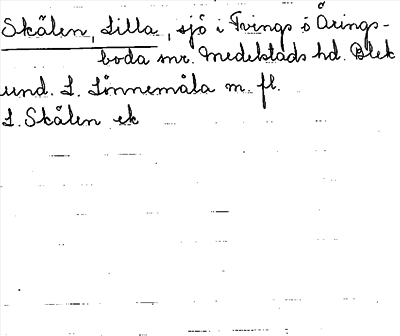 Skälen, Lilla, sjö i Tvings o Årings-
boda snr. Medelstads hd. Blek
und. L. Linnemåla m. fl.
L. Skälen ek